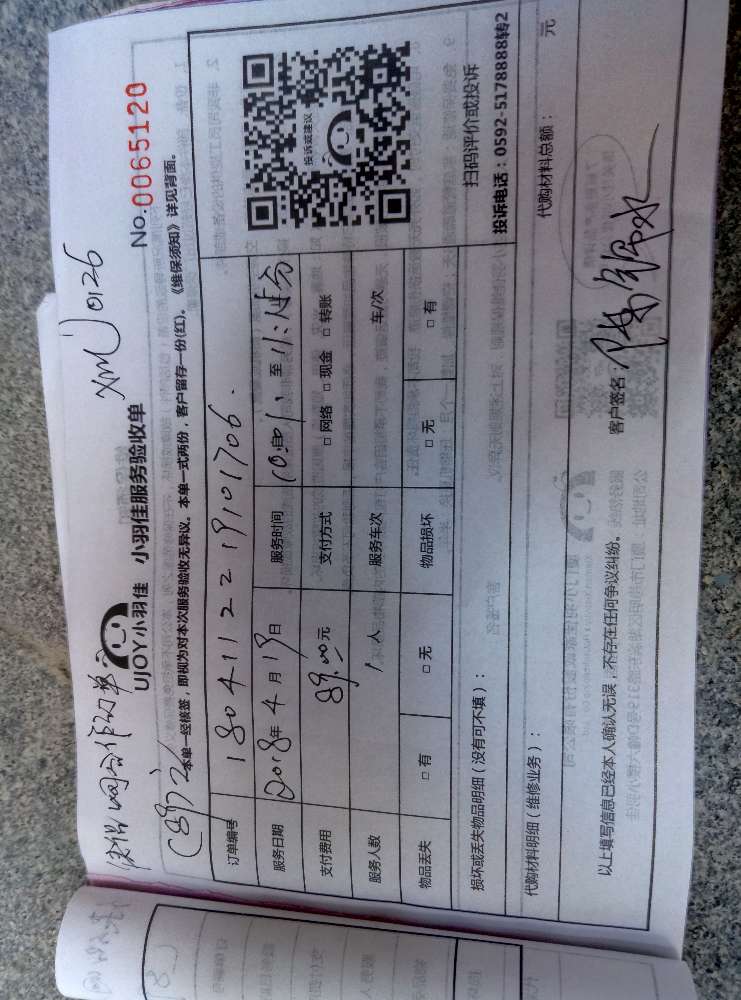 XMJ0126
合作订单
(89元)
UJOY小羽佳 小羽佳服务验收单
No.0065120
本单一经核签,即视为对本次服务验收无异议。本单一式两份,客户留存一份(红)。《维保须知》详见背面。
订单编号 180411221910 1706.
服务日期 2018年4月19日 服务时间 至
支付费用 89.00元 支付方式 □网络 □现金 □转账
服务人数 1人 服务车次 车/次
物品丢失 □有 □无 物品损坏 □无 □有
投诉或建议
扫码评价或投诉
投诉电话:0592-5178888转2
损坏或丢失物品明细(没有可不填):
代购材料明细(维修业务): 代购材料总额: 元
以上填写信息已经本人确认无误,不存在任何争议纠纷。 客户签名: